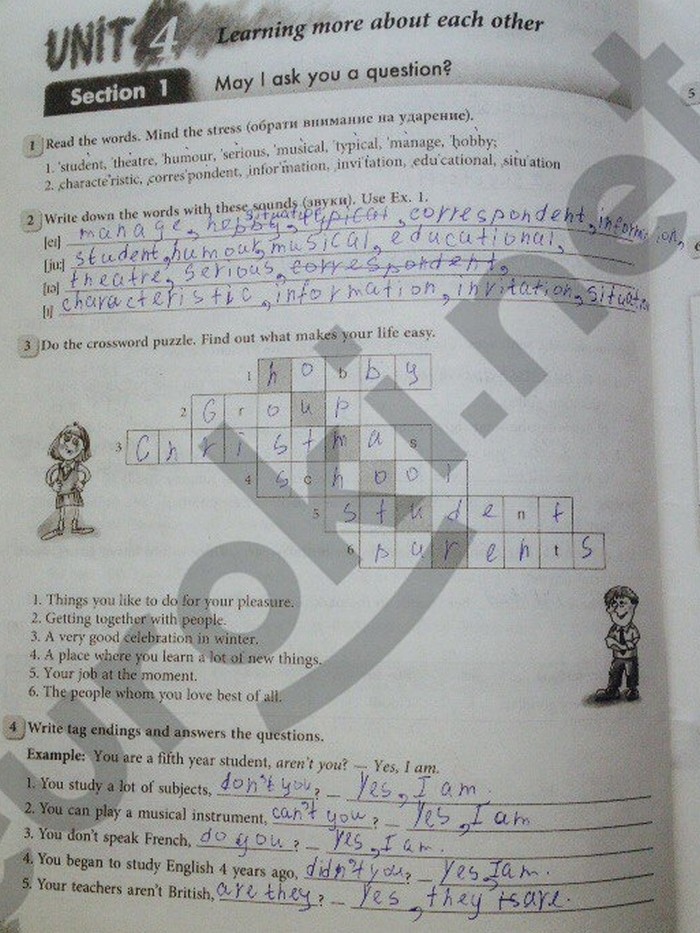 UNIT 4 Learning more about each other
Section 1 May I ask you a question?
1 Read the words. Mind the stress (обрати внимание на ударение).
1. 'student, 'theatre, 'humour, 'serious, 'musical, 'typical, 'manage, 'hobby;
2. ,characte'ristic, ,corres'pondent, ,infor'mation, ,invi'tation, ,edu'cational, ,situ'ation
2 Write down the words with these sounds (звуки). Use Ex. 1.
situation
[eı] manage, hobby, typical, correspondent, information,
[ju:] student, humour, musical, educational,
[ıə] theatre, serious, correspondent,
[ı] characteristic, information, invitation, situation
3 Do the crossword puzzle. Find out what makes your life easy.
1 hobby
2 Group
3 Christmas
4 school
5 student
6 parents
1. Things you like to do for your pleasure.
2. Getting together with people.
3. A very good celebration in winter.
4. A place where you learn a lot of new things.
5. Your job at the moment.
6. The people whom you love best of all.
4 Write tag endings and answers the questions.
Example: You are a fifth year student, aren't you? — Yes, I am.
1. You study a lot of subjects, don't you? — Yes, I am.
2. You can play a musical instrument, can't you? — Yes, I am
3. You don't speak French, do you? — Yes, I am.
4. You began to study English 4 years ago, didn't you? — Yes, I am.
5. Your teachers aren't British, are they? — Yes, they are.
5
euroki.net